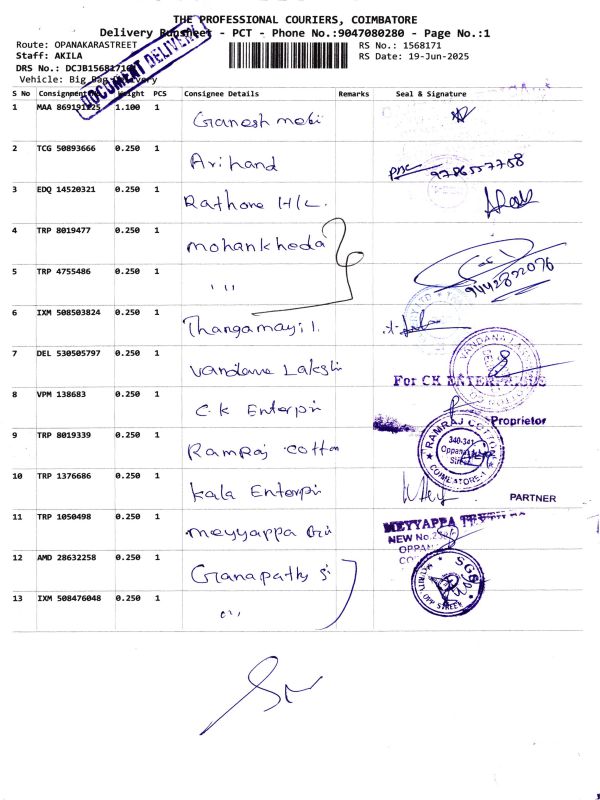 THE PROFESSIONAL COURIERS, COIMBATORE
Delivery Runsheet - PCT - Phone No.:9047080280 - Page No.:1
Route: OPANAKARASTREET
RS No.: 1568171
Staff: AKILA
RS Date: 19-Jun-2025
DRS No.: DCJB1568171
Vehicle: Big Bag Delivery
DOCUMENT DELIVERY
S No Consignment Weight PCS Consignee Details Remarks Seal & Signature
1 MAA 869191225 1.100 1 Ganesh
2 TCG 50893666 0.250 1 Arihand 9786557758
3 EDQ 14520321 0.250 1 Rathore H/L.
4 TRP 8019477 0.250 1 mohankheda
5 TRP 4755486 0.250 1 ,, 9442892076
6 IXM 508503824 0.250 1 Thangamayil.
7 DEL 530505797 0.250 1 Vandana Lakshi
For CK ENTERPRISES
8 VPM 138683 0.250 1 C.K Enterpri
Proprietor
9 TRP 8019339 0.250 1 Ramraj Cotton
RAMRAJ COTTON
340-341
Oppana
Street
COIMBATORE-1
10 TRP 1376686 0.250 1 Kala Enterpri
PARTNER
11 TRP 1050498 0.250 1 Meyyappa
MEYYAPPA
NEW No.
OPPAN
12 AMD 28632258 0.250 1 Ganapathy Si
SGS
OPP STREET
13 IXM 508476048 0.250 1 ,,